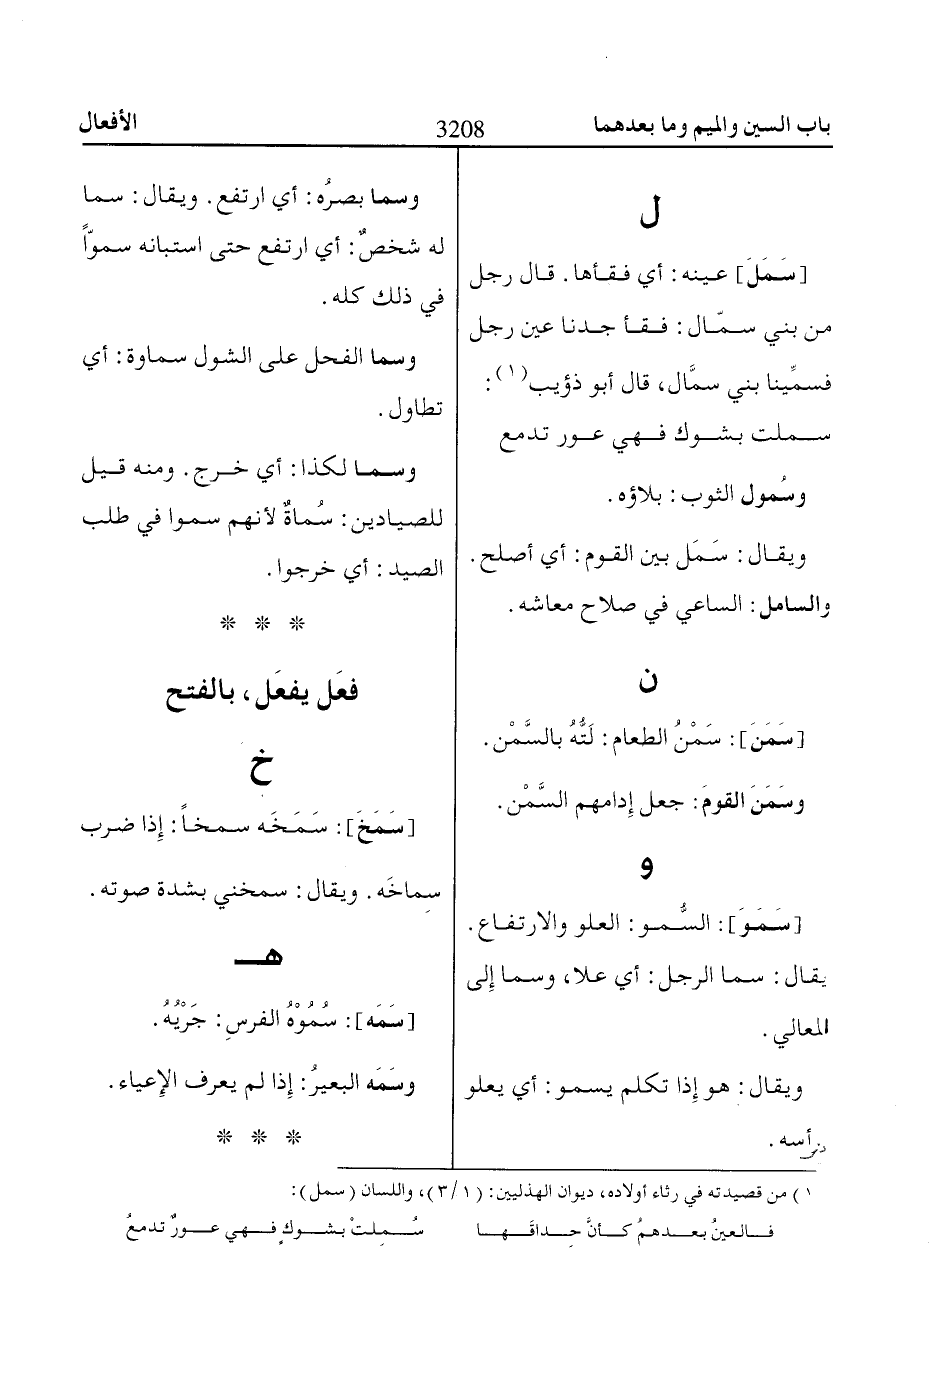 باب السين والميم وما بعدهما
3208
الأفعال
ل
[سَمَلَ] عينه: أي فقأها. قال رجل
من بني سمّال: فقأ جدنا عين رجل
فسمِّينا بني سمَّال، قال أبو ذؤيب(١):
سملت بشوك فهي عور تدمع
وسُمول الثوب: بلاؤه.
ويقال: سَمَل بين القوم: أي أصلح.
والسامل: الساعي في صلاح معاشه.
ن
[سَمَنَ]: سَمْنُ الطعام: لَتُّهُ بالسَّمْن.
وسَمَنَ القومَ: جعل إدامهم السَّمْن.
و
[سَمَوَ]: السُّمو: العلو والارتفاع.
يقال: سما الرجل: أي علا، وسما إلى
المعالي.
ويقال: هو إذا تكلم يسمو: أي يعلو
برأسه.
وسما بصرُه: أي ارتفع. ويقال: سما
له شخصٌ: أي ارتفع حتى استبانه سموّاً
في ذلك كله.
وسما الفحل على الشول سماوة: أي
تطاول.
وسما لكذا: أي خرج. ومنه قيل
للصيادين: سُماةٌ لأنهم سموا في طلب
الصيد: أي خرجوا.
* * *
فعَل يفعَل، بالفتح
خ
[سَمَخَ]: سَمَخَه سمخاً: إذا ضرب
سِماخَه. ويقال: سمخني بشدة صوته.
هـ
[سَمَه]: سُمُوْهُ الفرسِ: جَرْيُهُ.
وسَمَه البعيرُ: إذا لم يعرف الإعياء.
* * *
١) من قصيدته في رثاء أولاده، ديوان الهذليين: (٣/١)، واللسان (سمل):
فالعينُ بعدهمُ كأنَّ حِداقَها سُملتْ بشوكٍ فهي عورٌ تدمعُ